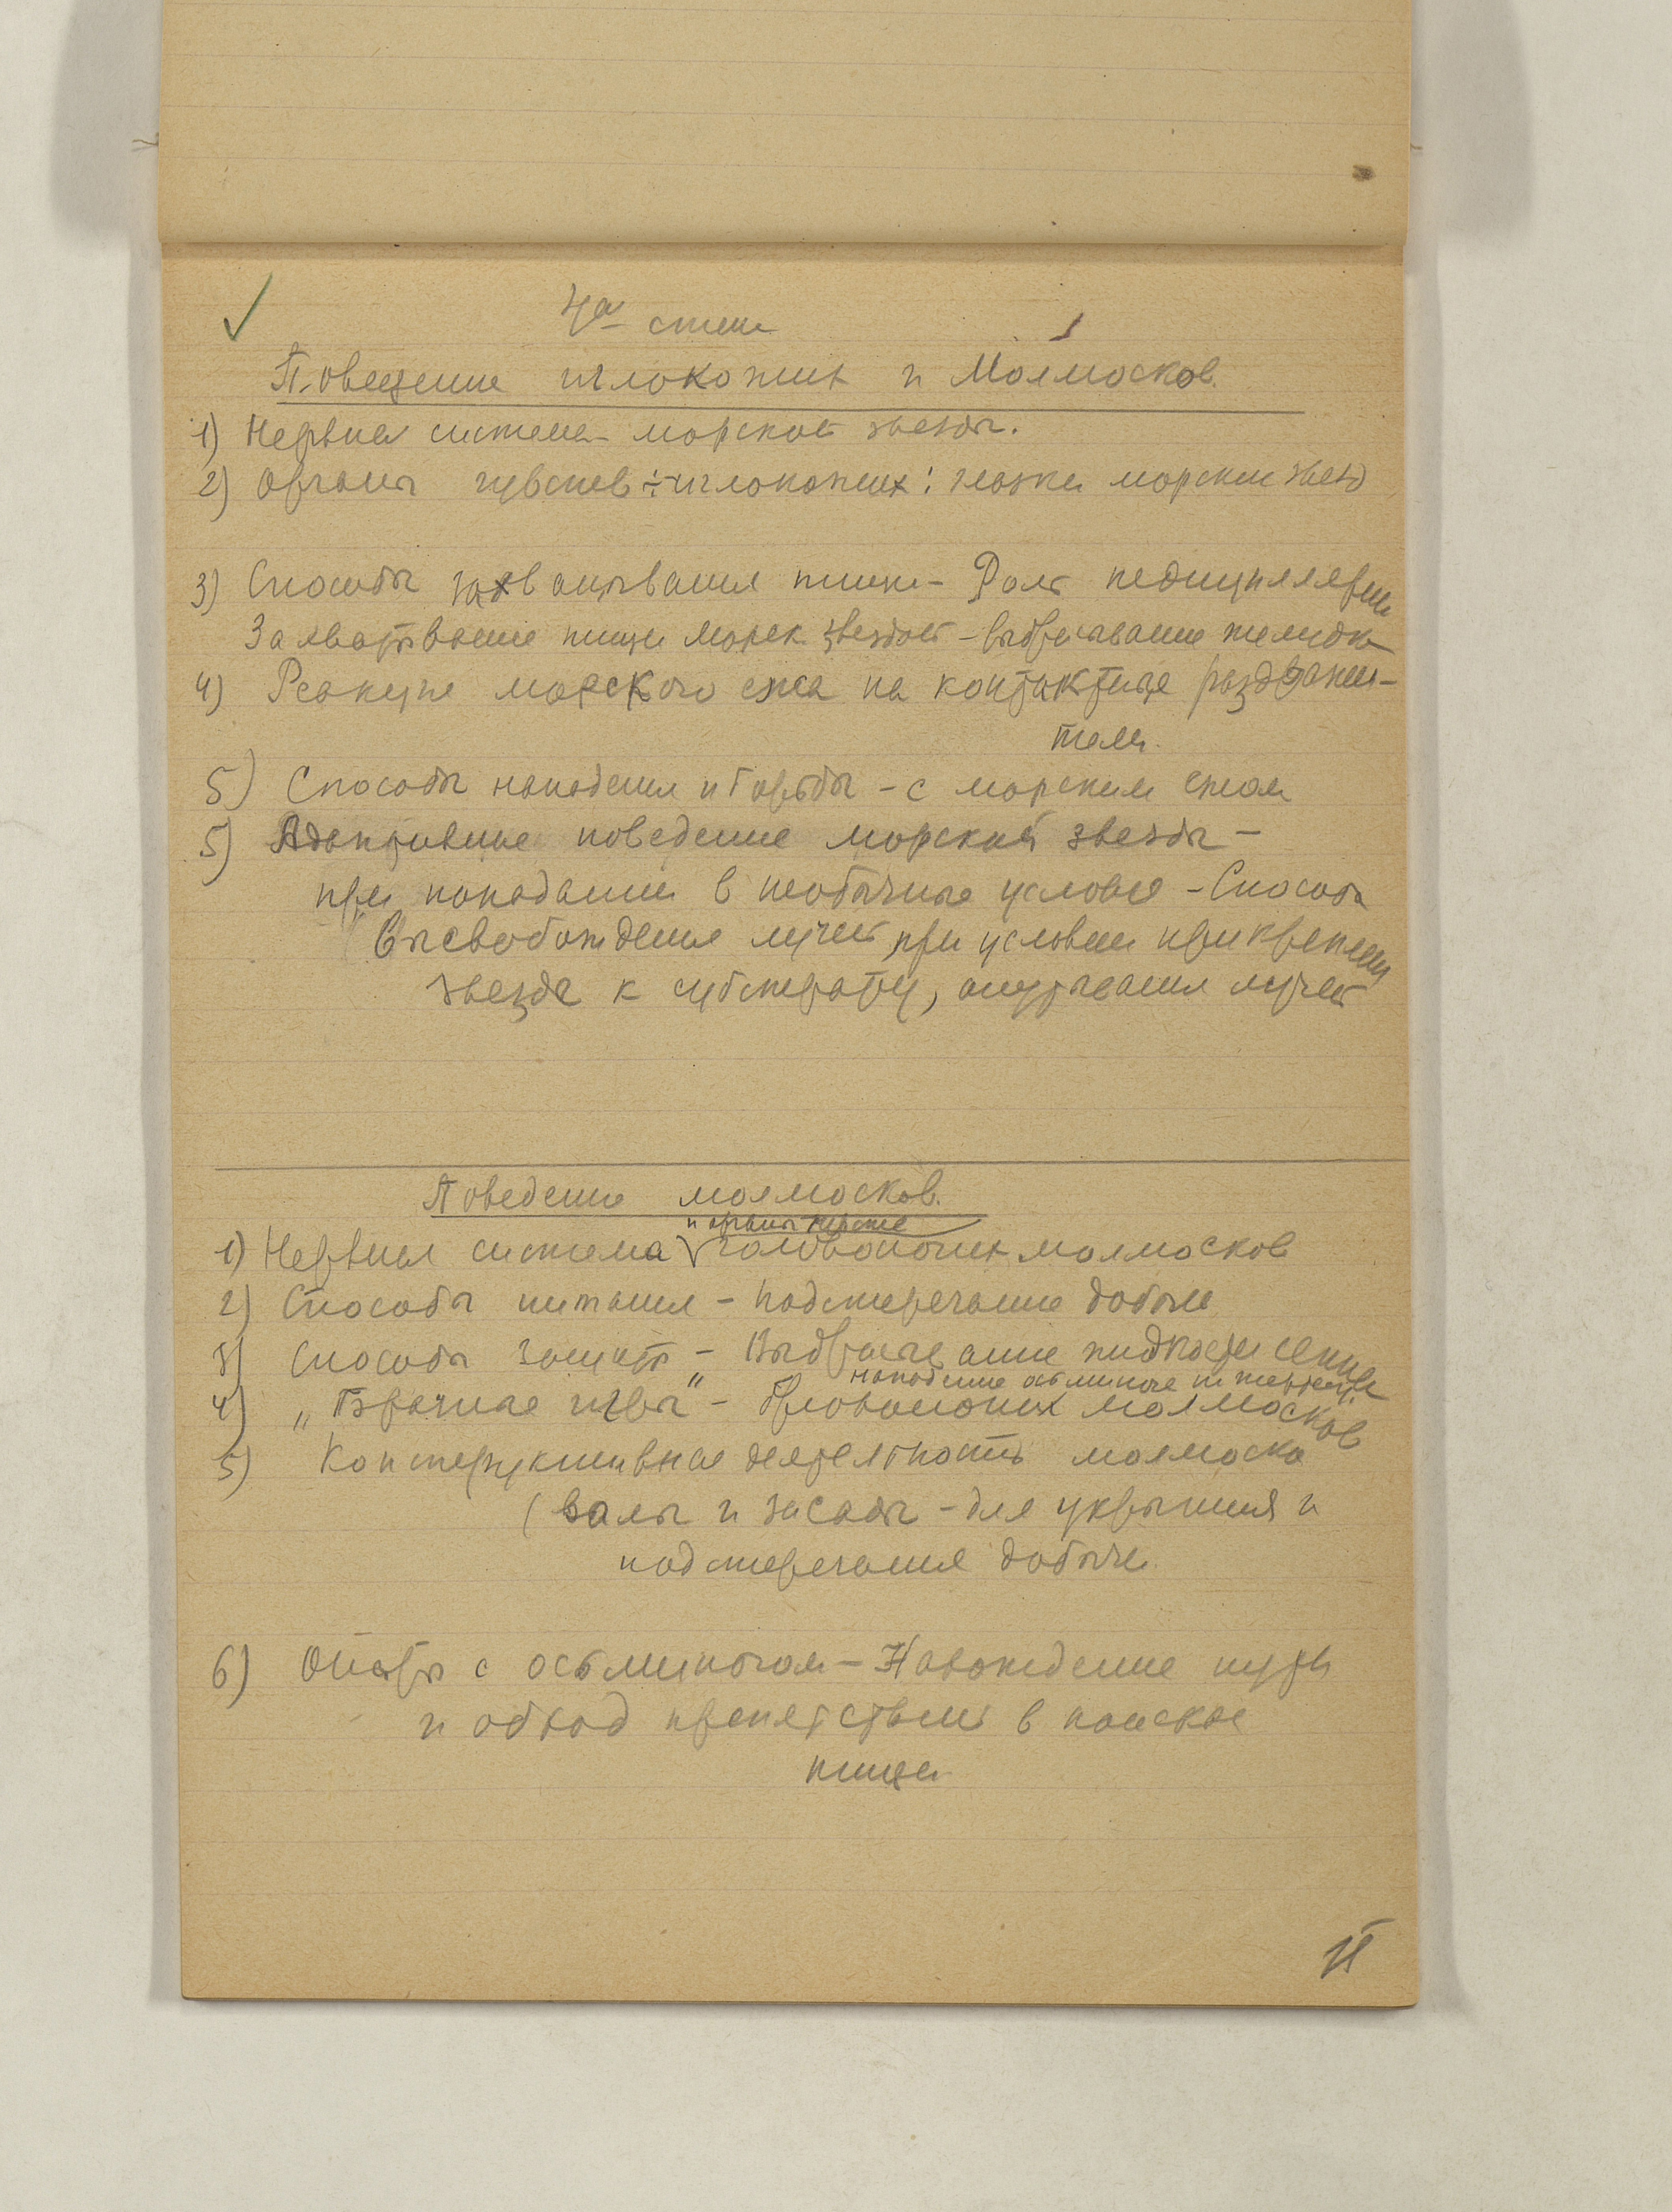 4ая стена
Поведение иглокожих и Моллюсков.
1) Нервная система морской звезды.
2) Органы чувств иглокожих: глазки морских звезд
3) Способы захватывания пищи – Роль педицеллярий
Захватывание пищи морск звездой – выбрасывание желудка
4) Реакция морского ежа на контактные раздражи-
тели.
5) Способы нападения и борьбы – с морским ежом
5) Адаптивное поведение морской звезды –
при попадании в необычные условия – Способы
высвобождения лучей при условии прикрепления
звезды к субстрату, опутывания лучей
Поведение моллюсков.
и органы чувств
1) Нервная система головоногих моллюсков
2) Способы питания – подстерегание добычи
3) Способы защиты – Выбрасывание жидкости сепии
нападение осьминога на
4) „Брачные игры" – головоногих моллюсков
5) Конструктивная деятельность моллюска
(валы и засады – для укрытия и
подстерегания добычи
6) Опыты с осьминогом – Нахождение пути
и обход препятствий в поисках
пищи